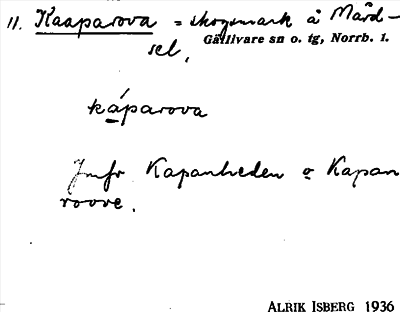 11. Kaaparova = skogsmark å Mård-
Gällivare sn o. tg, Norrb. l.
sel.
káparova
Jmfr Kapanheden o Kapan
roove.
ALRIK ISBERG 1936